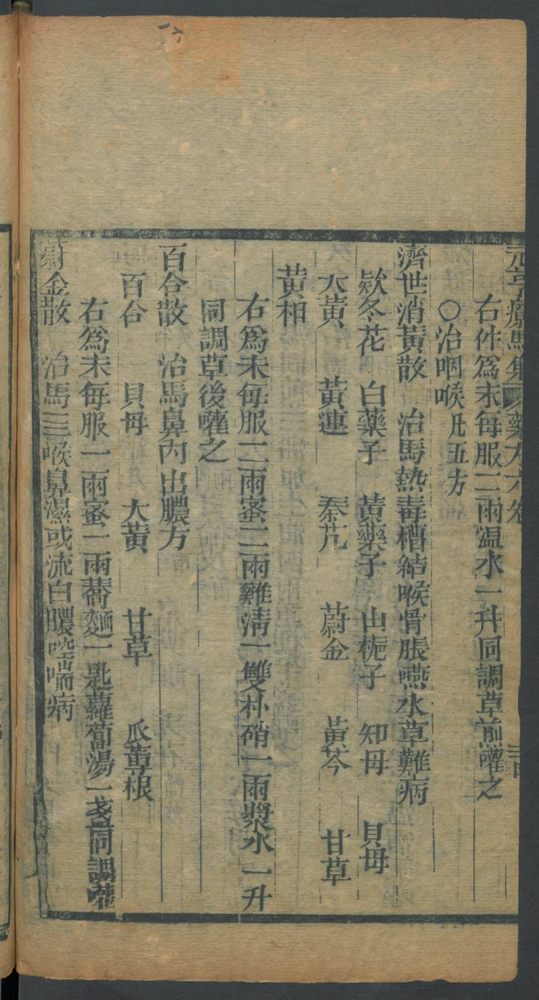 元亨療馬集 藥方六卷 三四
右件爲末每服二兩溫水一升同調草前嚾之
○治咽喉凡五方
濟世消黃散 治馬熱毒槽結喉骨脹嚥水草難病
欵冬花 白藥子 黃藥子 山梔子 知母 貝母
大黃 黃連 秦艽 蔚金 黃芩 甘草
黃柏
右爲末每服二兩蜜二兩雞清一雙朴硝一兩漿水一升
同調草後嚾之
百合散 治馬鼻內出膿方
百合 貝母 大黃 甘草 瓜蔞根
右爲末每服一兩蜜一兩蕎麵一匙蘿蔔湯一盞同調嚾
蔚金散 治馬三喉鼻濕或流白膿喘病